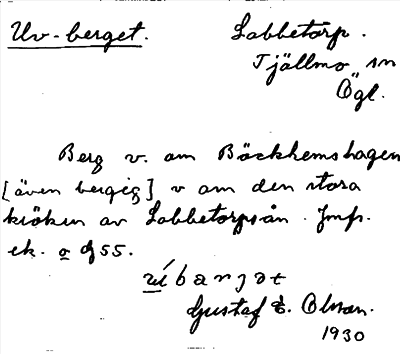 Uv-berget.
Lobbetorp.
Tjällmo sn
Ögl.
Berg v. om Böckhemshagen
[även bergig] v om den stora
kröken av Lobbetorpsån. Jmfr.
ek. o dj 55.
Gustaf E. Olsson.
1930